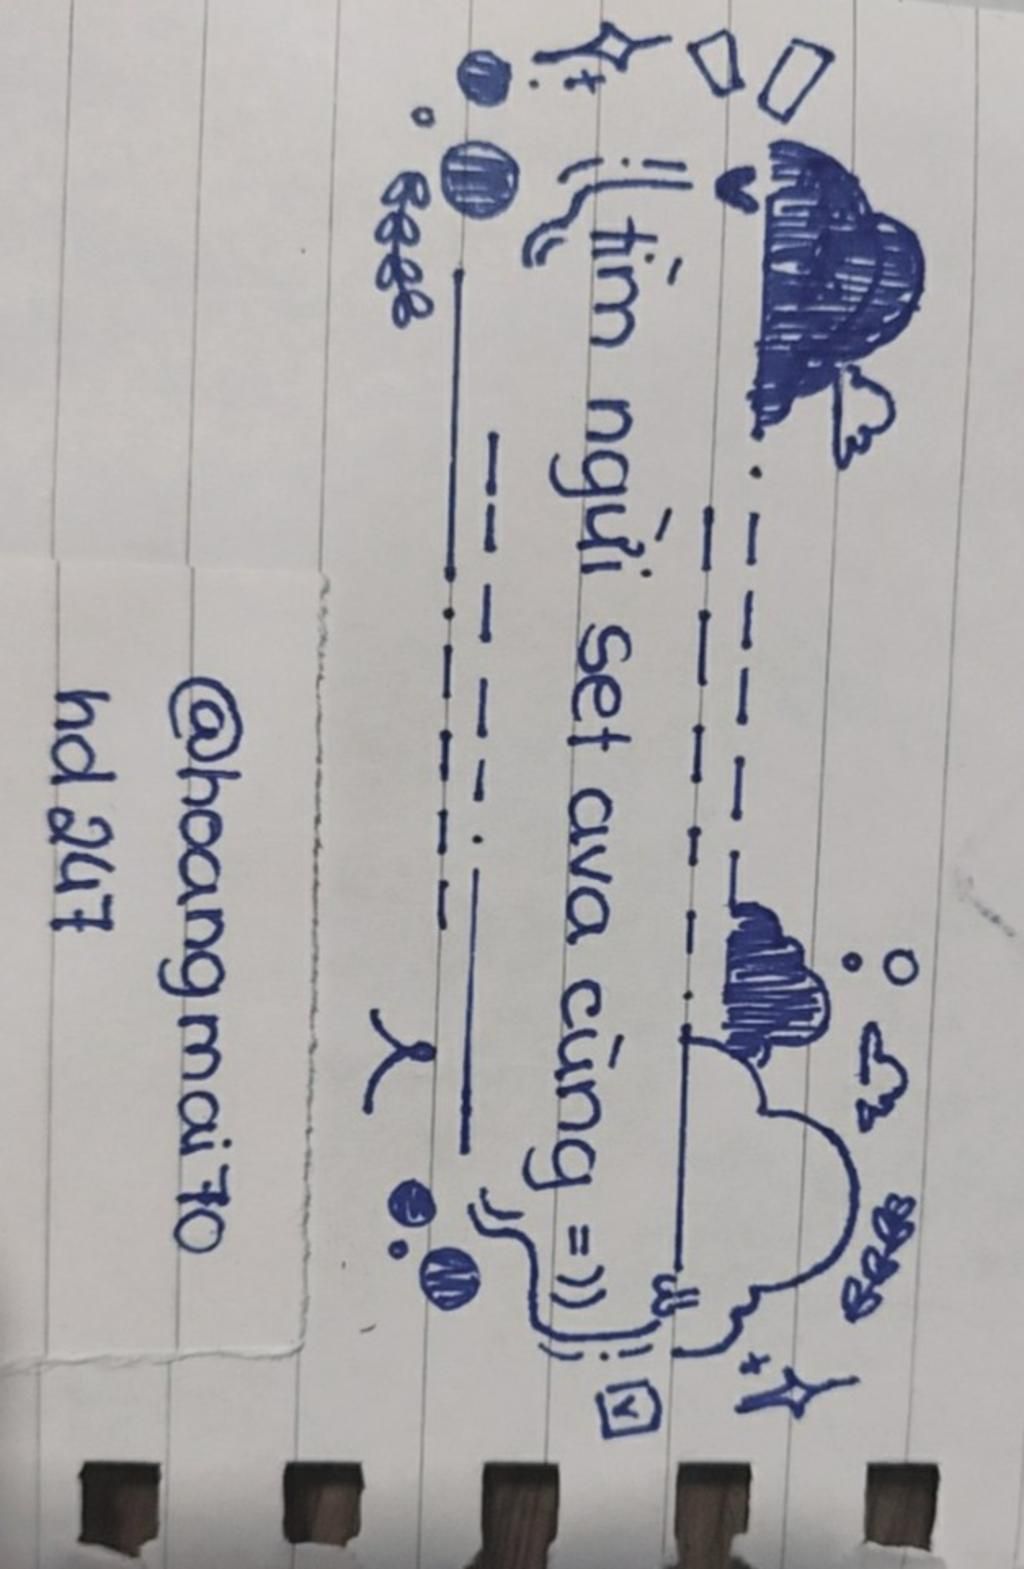 tìm người set ava cùng =))
@hoangmai70
hd 247